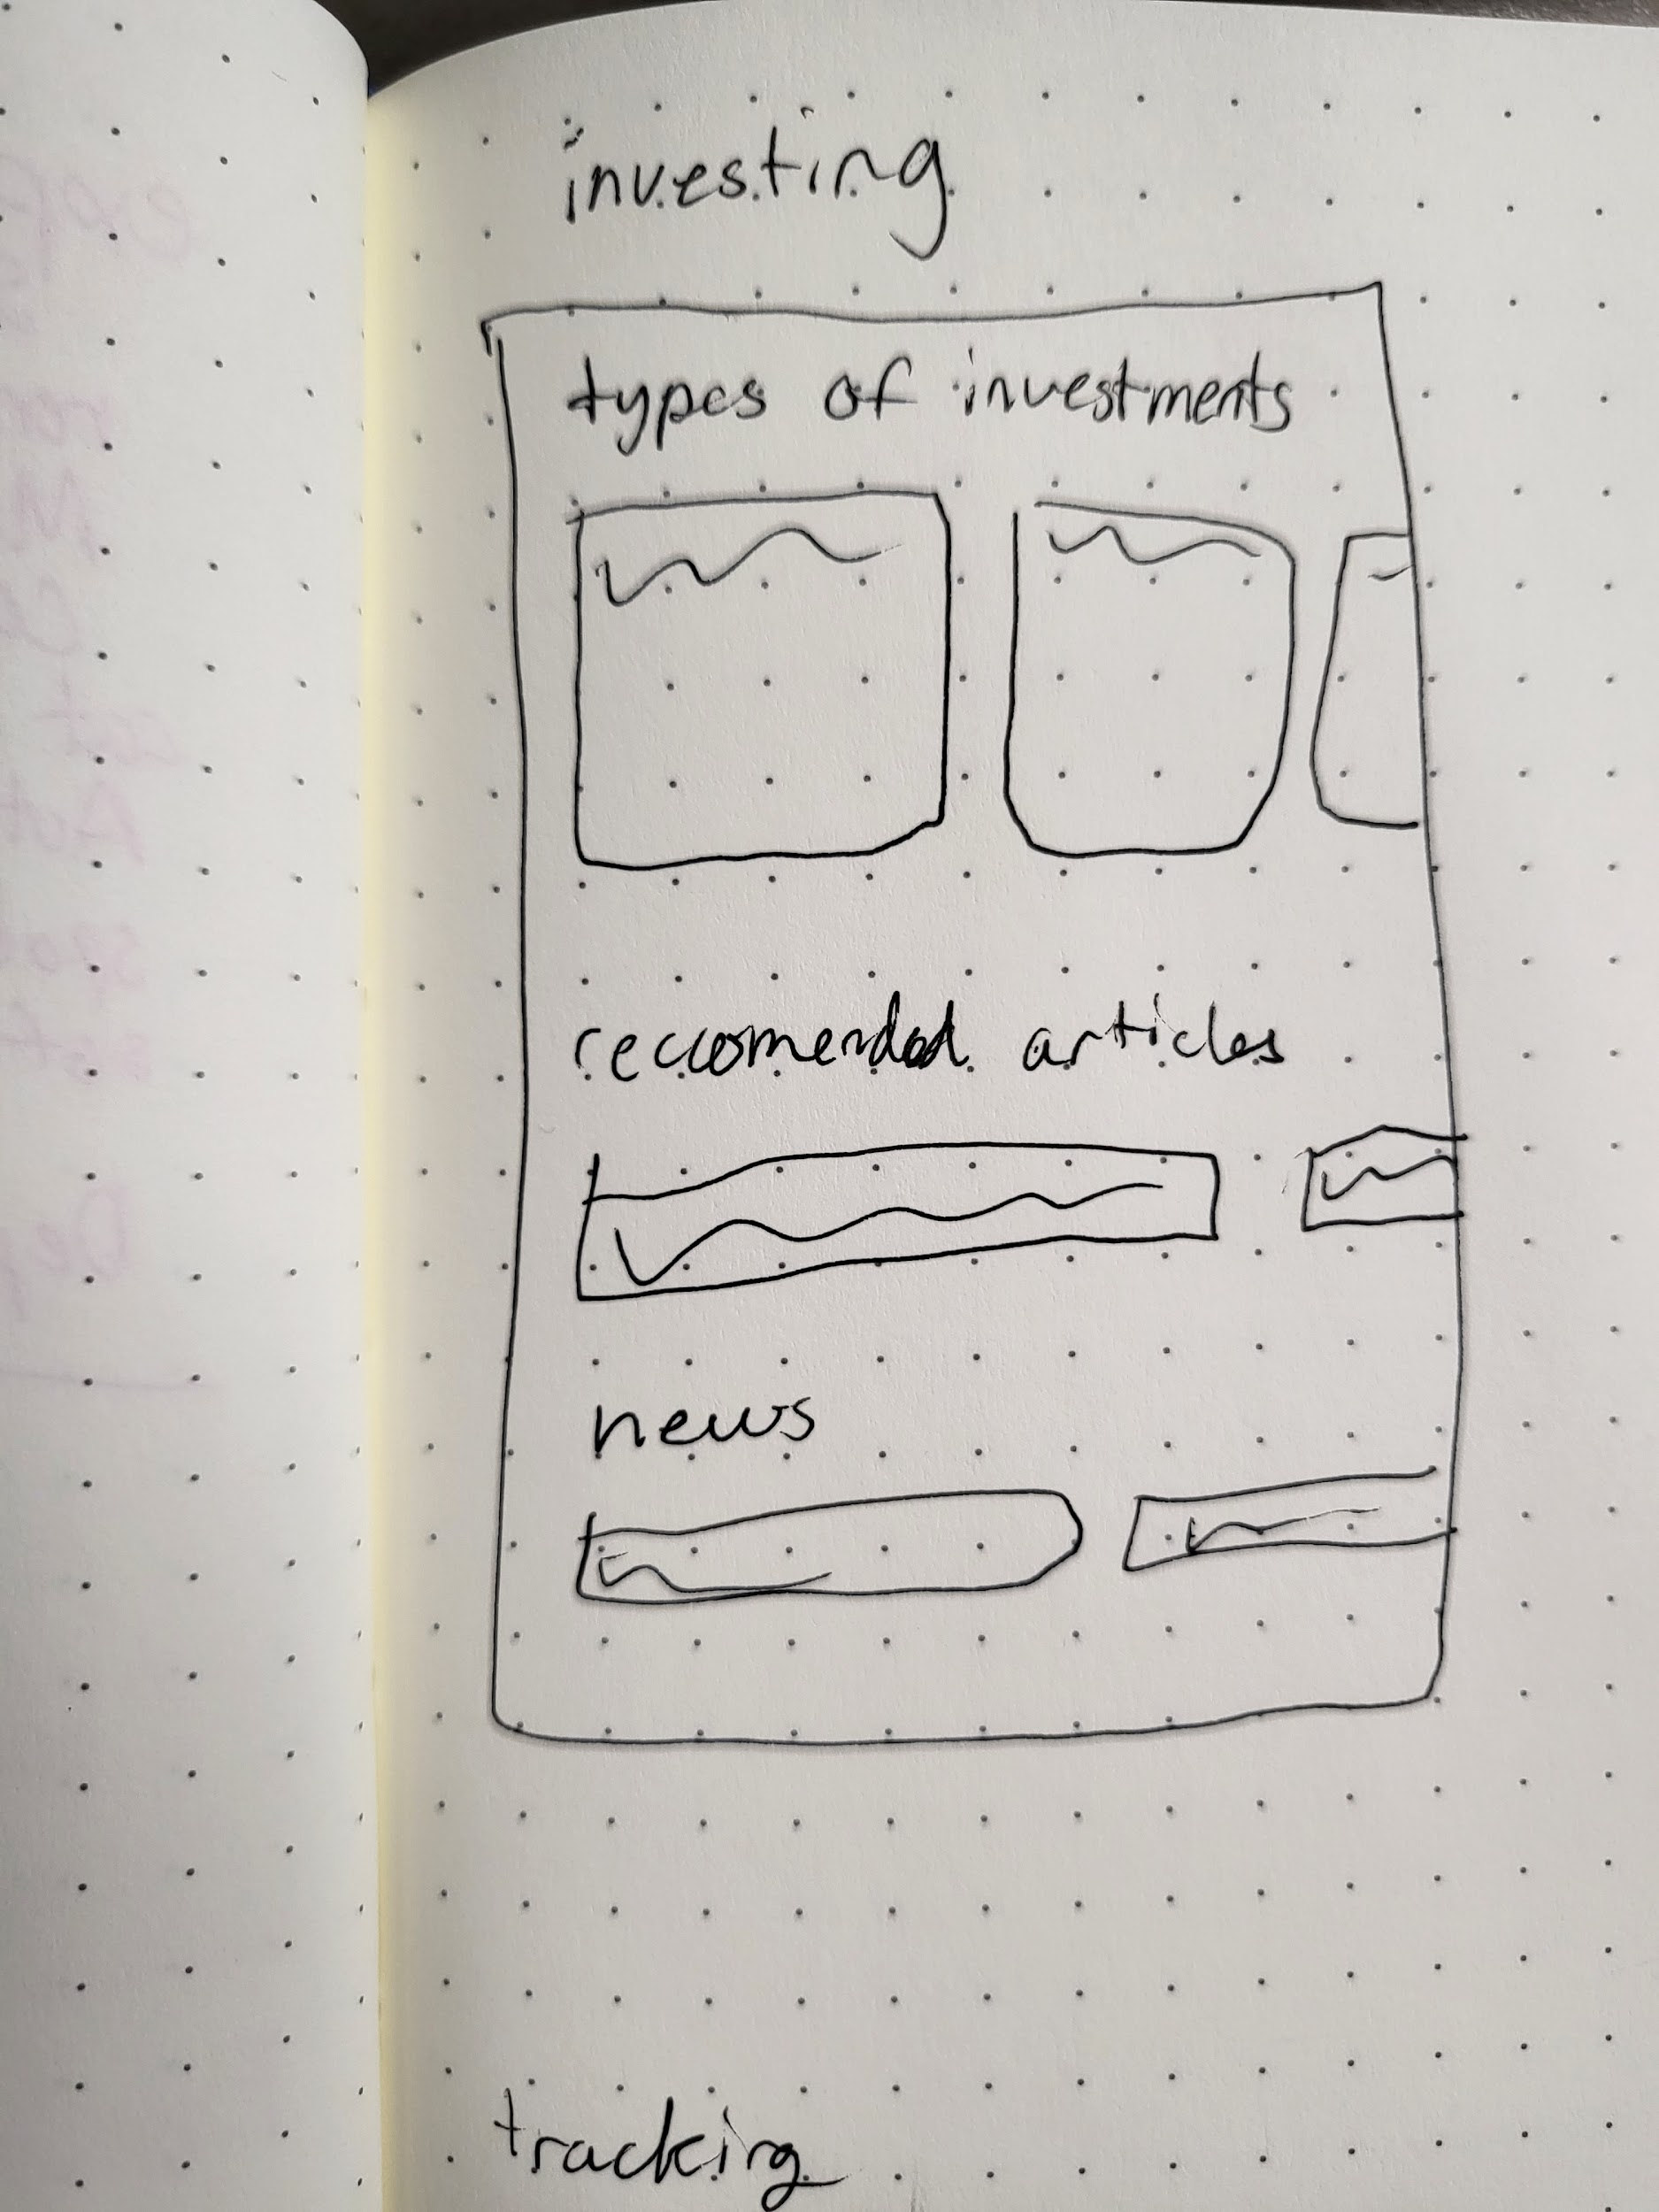 investing
types of investments
reccomended articles
news
tracking